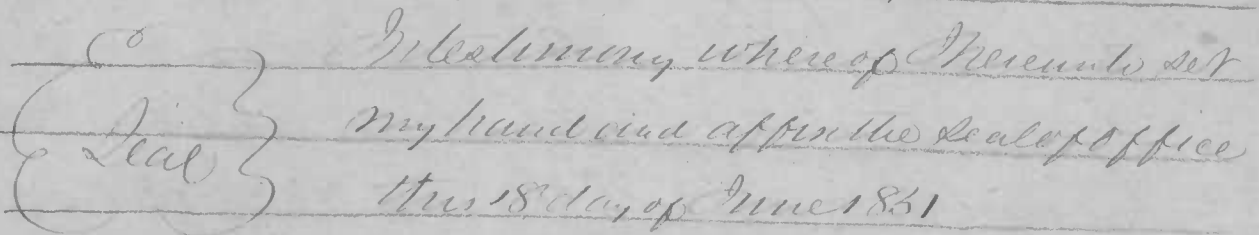 In testimony whereof I hereunto set
my hand and affix the seal of office
Seal
this 18 day of June 1851